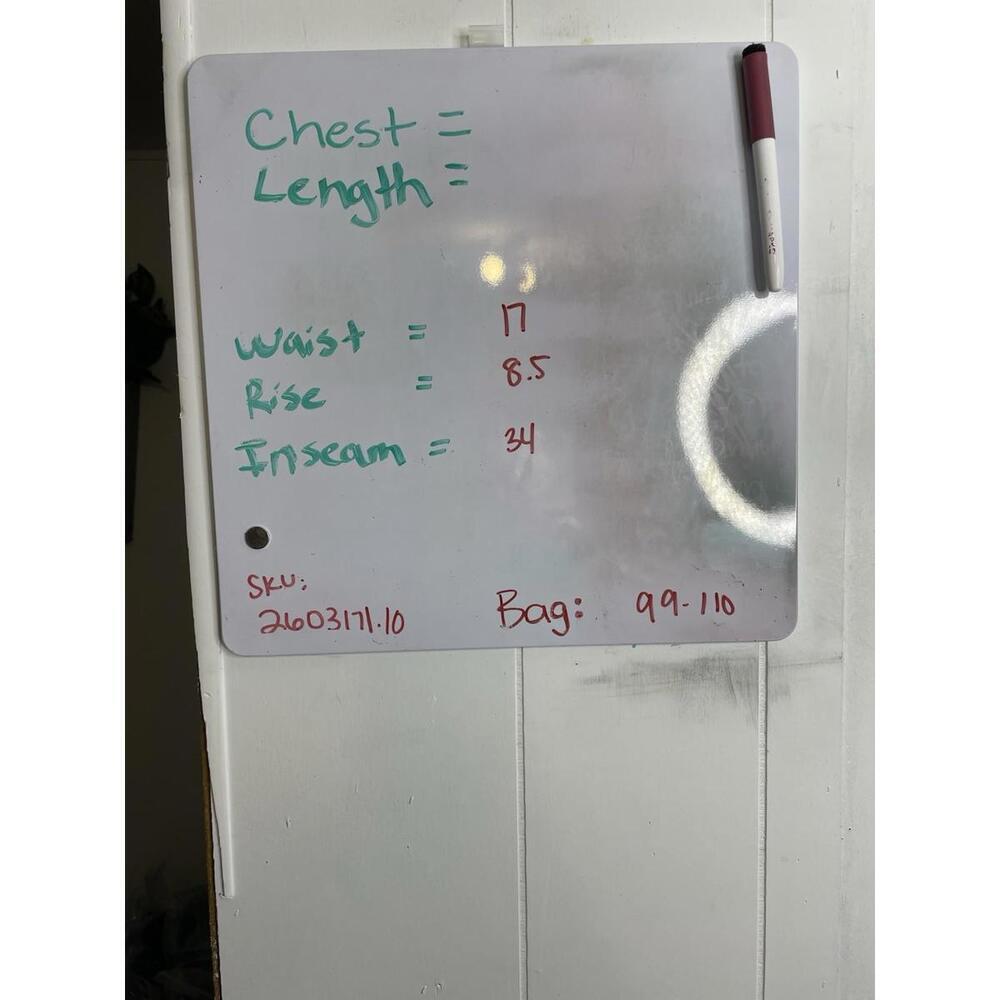 Chest =
Length =
Waist = 17
Rise = 8.5
Inseam = 34
SKU:
2603171.10
Bag: 99-110